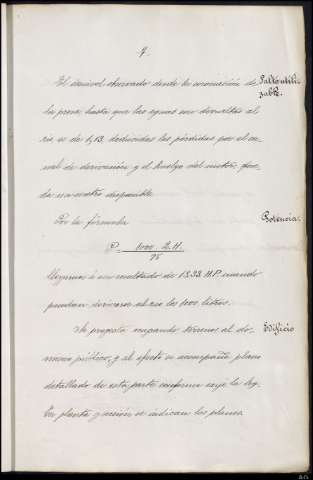 4.
El desnivel observado desde la coronación de
la presa, hasta que las aguas son devueltas al
río es de 1,13. deducidas las pérdidas por el ca-
nal de derivación y el huelgo del motor, que-
da un metro disponible.
Salto utili-
zable.
Por la fórmula
Potencia.
P = 1000. Q. H
75
llegamos á un resultado de 13.33 H.P. cuando
puedan derivarse del río los 1000 litros.
Se proyecta ocupando terreno al do-
minio público, y al efecto se acompaña plano
detallado de esta parte conforme exije la ley.
En planta y sección se indican los planos
Edificio